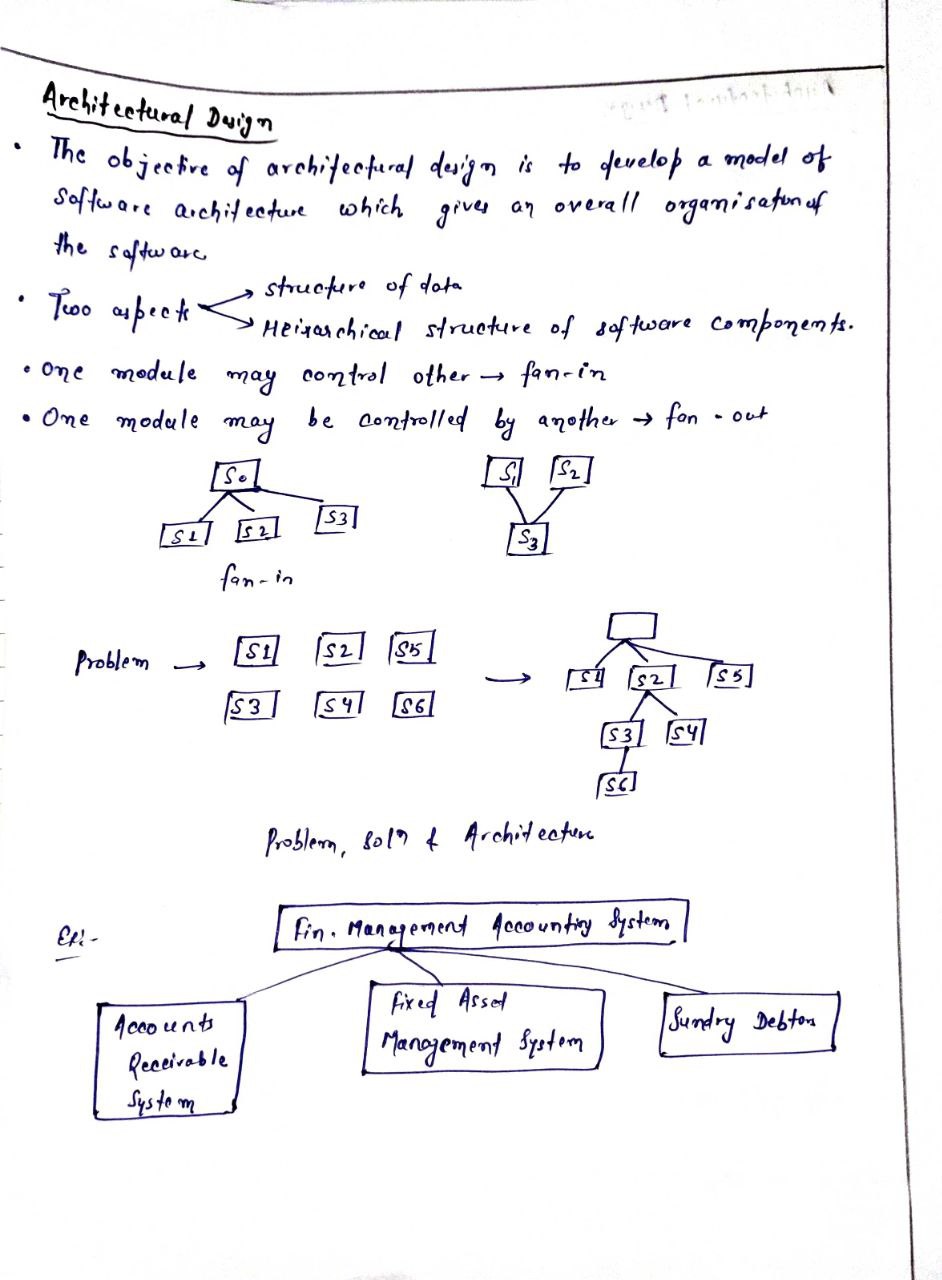 Architectural Design
• The objective of architectural design is to develop a model of
software architecture which gives an overall organisation of
the software
• Two aspects → structure of data
→ Heirarchical structure of software components.
• One module may control other → fan-in
• One module may be controlled by another → fan-out
S0
S1 S2 S3
fan-in
S1 S2
S3
Problem → S1 S2 S5
S3 S4 S6
→
S1 S2 S5
S3 S4
S6
Problem, Soln & Architecture
Ex:-
Fin. Management Accounting System
Accounts
Receivable
System
Fixed Asset
Management System
Sundry Debtors